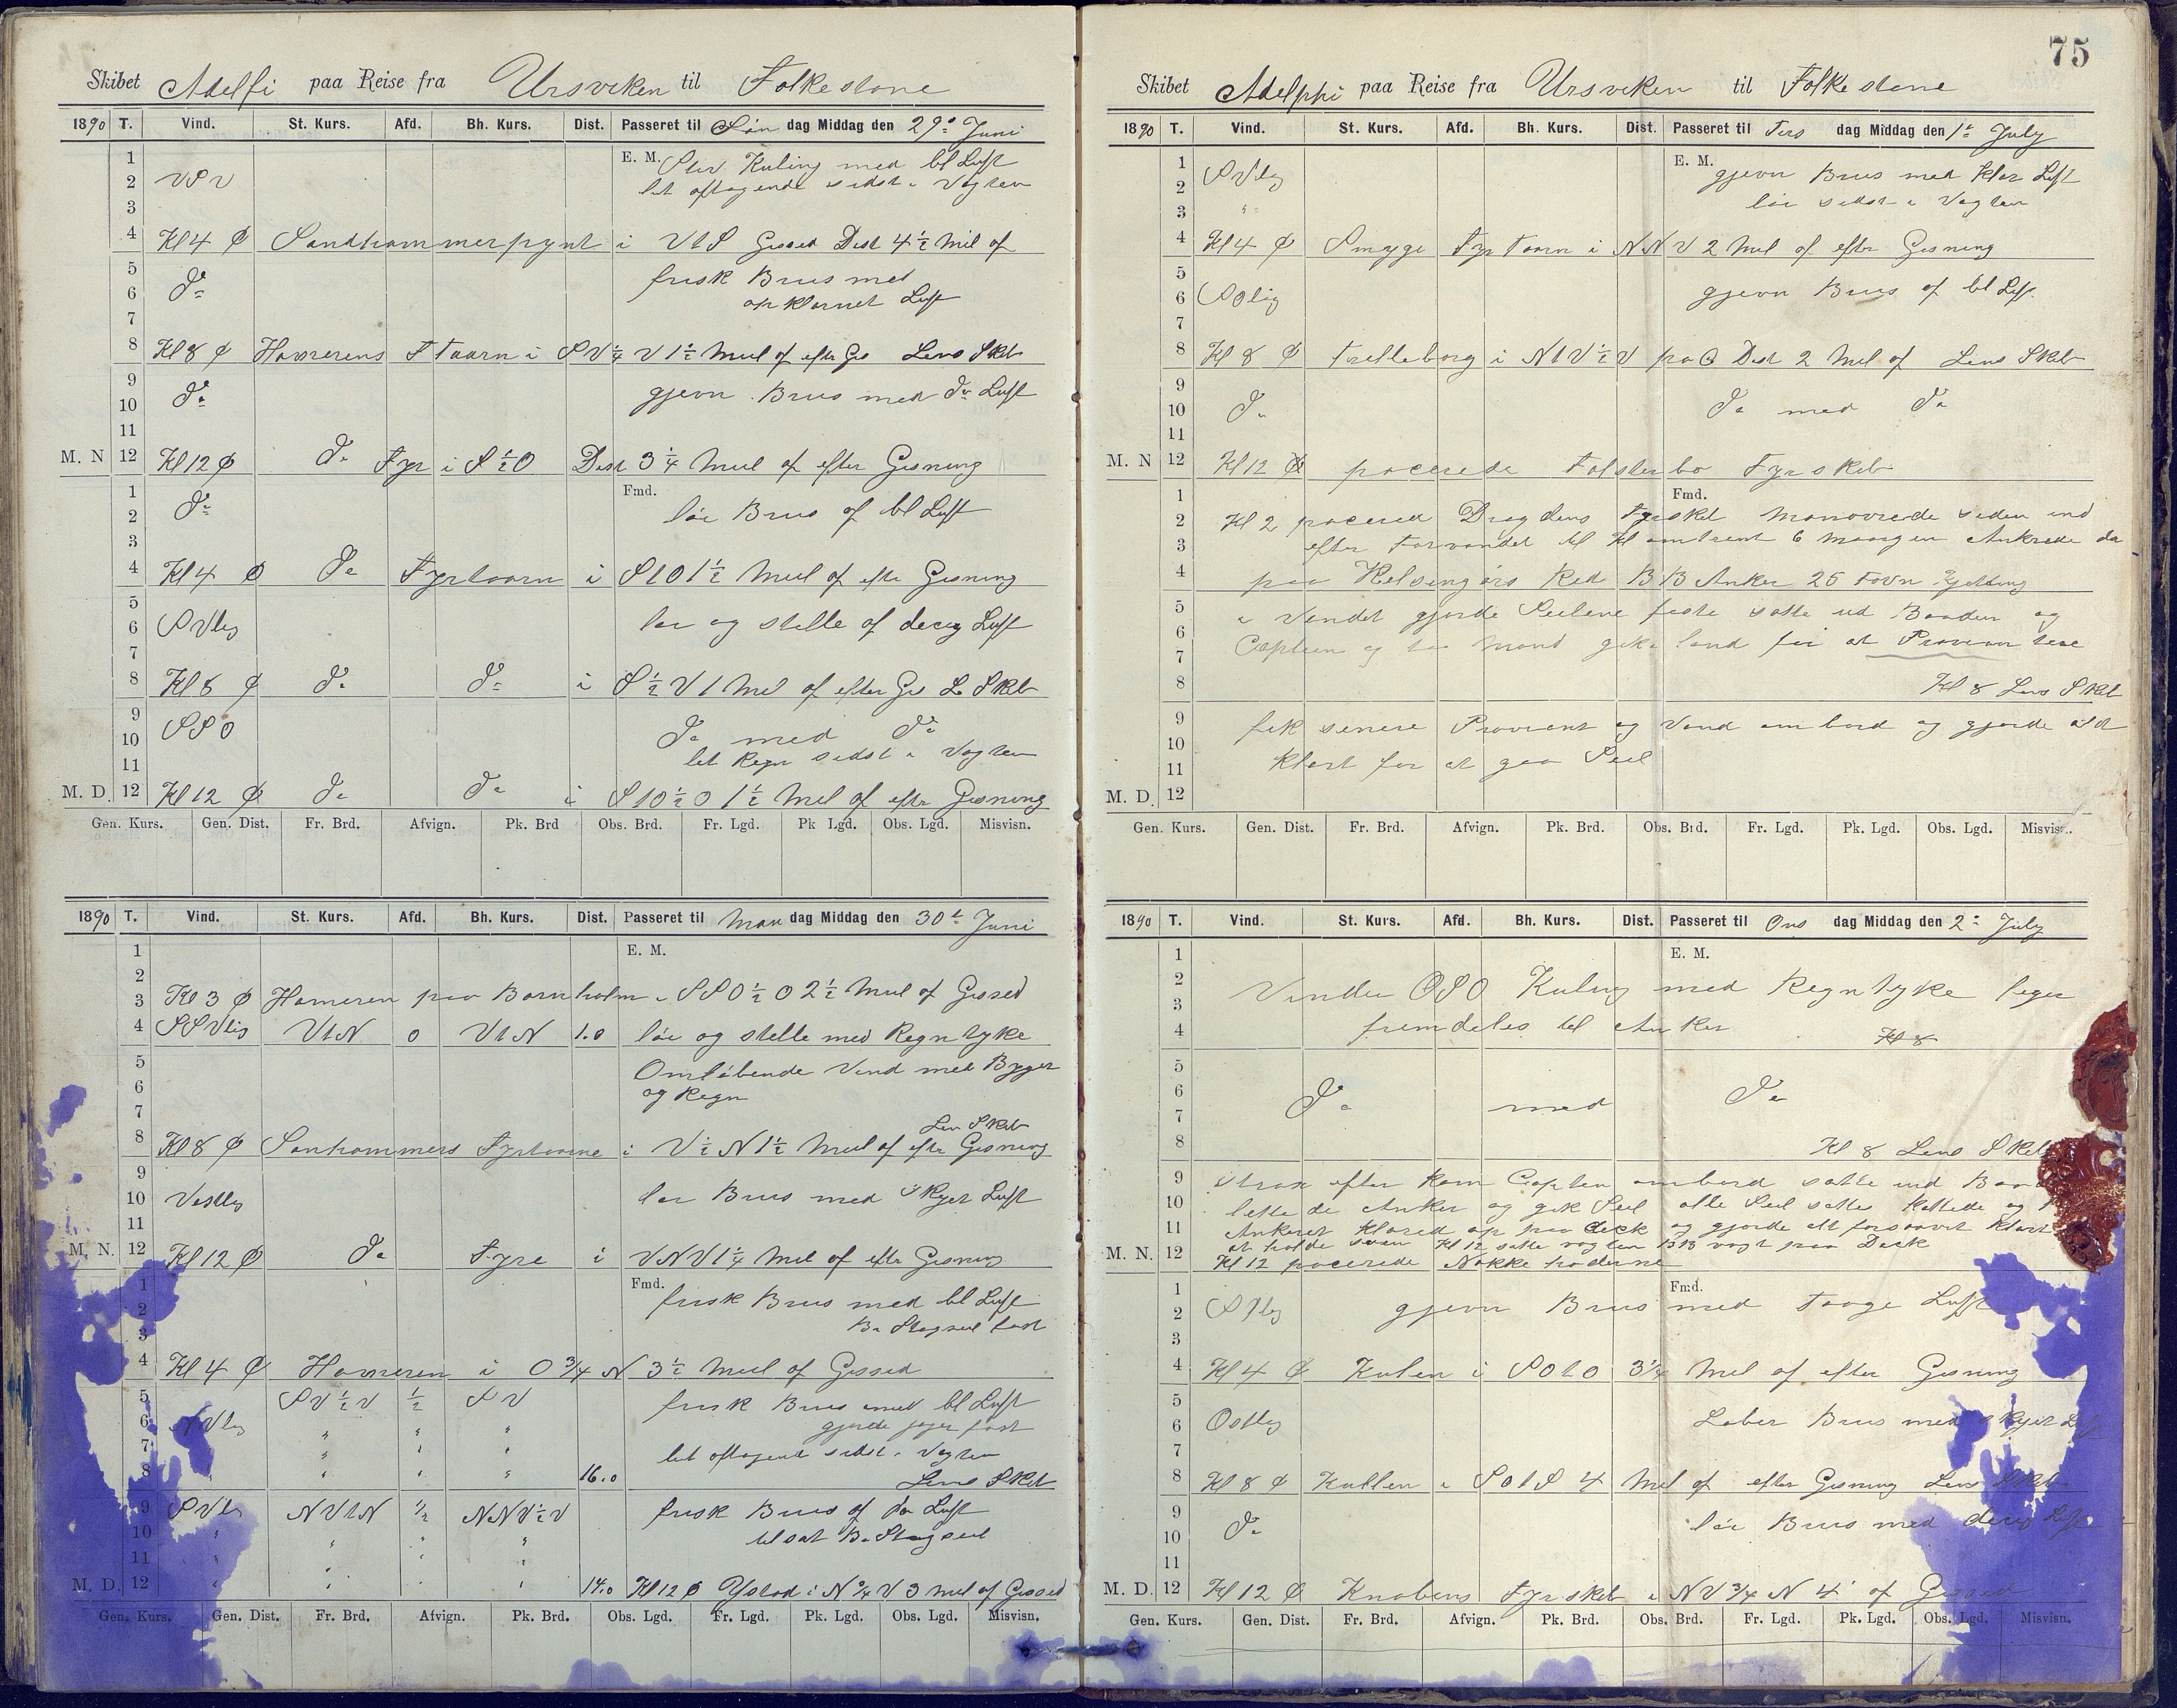 Skibet Adelfi paa Reise fra Ursviken til Folkestone
1890 T. Vind. St. Kurs. Afd. Bh. Kurs. Dist. Passeret til Søn dag Middag den 29de Juni
E. M.
1 Stiv Kuling med bl Luft
2 VSV let aftagende sidst i Vagten
3
4 Kl 4 ø Sandhammerpynt i VtS Gisset Dist 4 1/2 Mil af
5 frisk Brus med
6 do opklarnet Luft
7
8 Kl 8 ø Hamrerens F Taarn i SV 1/4 V 1 1/2 Miil af efter Gis Lens Skib
9 gjevn Brus med do Luft
10 do
11
M. N 12 Kl 12 ø do Fyr i S 1/2 O Dist 3 1/4 Miil af efter Gisning
Fmd.
1
2 do lør Brus af bl Luft
3
4 Kl 4 ø do Fyrtaarn i StO 1 1/2 Miil af efter Gisning
5
6 SVlig lør og stille af diesig Luft
7
8 Kl 8 ø do do i S 1/2 V 1 Miil af efter Gis L Skib
9 SSO do med do
10 let Regn sidst i Vagten
11
M. D. 12 Kl 12 ø do do i StO 1/2 O 1 1/2 Mil af efter Gisning
Gen. Kurs. Gen. Dist. Fr. Brd. Afvign. Pk. Brd Obs. Brd. Fr. Lgd. Pk Lgd. Obs. Lgd. Misvisn.
1890 T. Vind. St. Kurs. Afd. Bh. Kurs. Dist. Passeret til Man dag Middag den 30te Juni
E. M.
1
2
3 Kl 3 ø Hameren paa Bornholm i SSO 1/2 O 2 1/2 Miil af Gisset
4 SSVlig VtN 0 VtN 1.0 lør og stille med Regntyke
5 Omløbende Vind med Byger
6 og Regn
7 Lens Skib
8 Kl 8 ø Sanhammers Fyrtaarne i V 1/2 N 1 1/2 Miil af efter Gisning
9
10 Vestlig lør Brus med Skyet Luft
11
M. N. 12 Kl 12 ø do Fyre i VNV 1 1/4 Mil af efter Gisning
Fmd.
1 frisk Brus med bl Luft
2 Br Stagseil fast
3
4 Kl 4 ø Hameren i O 3/4 N 3 1/2 Miil af Gisset
5 SV 1/2 V 1/2 SV frisk Brus med bl Luft
6 gjorde jager fast
7 " " " let aftagende sidst i Vagten
8 " " " 16.0 Lens Skib
9 SVlig NVtN 1/2 NNV 1/2 V frisk Brus af do Luft
10 " " " " tilsat Br Stagseil
11 " " " "
M. D. 12 " " " " 14.0 Kl 12 ø Ystad i N 3/4 V 3 Miil af Gisset
Gen. Kurs. Gen. Dist. Fr. Brd. Afvign. Pk. Brd. Obs. Lgd. Fr. Lgd. Pk. Lgd. Obs. Lgd. Misvisn.
75
Skibet Adelphi paa Reise fra Ursviken til Folkestone
1890 T. Vind. St. Kurs. Afd. Bh. Kurs. Dist. Passeret til Tirs dag Middag den 1te July
E. M.
1 gjevn Brus med Klar Luft
2 SVlig lør sidst i Vagten
3 "
4 Kl 4 ø Smyge Fyr Taarn i NNV 2 Mil af efter Gisning
5
6 SOlig gjevn Brus af bl Luft
7
8 Kl 8 ø Trelleborg i NtV 1/2 V paa Dist 2 Mil af Lens Skib
9
10 do do med do
11
M. N 12 Kl 12 ø pacerede Falsterbo Fyrskib
Fmd.
1
2 Kl 2 pacered Drogdens Fyrskib Manøvrede siden ind
3 efter Farvandet til Kl omtrent 6 Morgen Ankrede da
4 paa Helsingørs Red BB Anker 25 Favn Kjetting
5 i Vandet gjorde Seilene faste satte ud Baaden og
6
7 Captein og to Mand gik i land for at Proviantere
8 Kl 8 Lens Skib
9 fik senere Proviant og Vand ombord og gjorde alt
10
11 klart for at gaa Seil
M. D. 12
Gen. Kurs. Gen. Dist. Fr. Brd. Afvign. Pk. Brd. Obs. Brd. Fr. Lgd. Pk. Lgd. Obs. Lgd. Misvisn.
1890 T. Vind. St. Kurs. Afd. Bh. Kurs. Dist. Passeret til Ons dag Middag den 2de July
E. M.
1
2 Vinden OSO Kuling med Regntyke liger
3
4 fremdeles til Anker Kl 8
5
6 do med do
7
8 Kl 8 Lens Skib
9 strax efter kom Captein ombord satte ud
10 lettede Anker og gik Seil alle Seil sattes Kattede og
11 Ankeret klared op paa deck og gjorde alt forsaavit klart
M. N. 12 Kl 12 satte vagten BB vagt paa Deck
Kl 12 pacerede Nakkehoderne
Fmd.
1
2 SOlig gjevn Brus med Taage Luft
3
4 Kl 4 ø Kulen i SOtO 3 1/4 Mil af efter Gisning
5
6 Ostlig Laber Brus med skyet Luft
7
8 Kl 8 ø Kullen i SOtS 4 Mil af efter Gisning Lens Skib
9
10 do lør Brus med diesig Luft
11
M. D. 12 Kl 12 ø Knobens Fyrskib i NV 3/4 N 4' af Gisset
Gen. Kurs. Gen. Dist. Fr. Brd. Afvign. Pk. Brd. Obs. Brd. Fr. Lgd. Pk. Lgd. Obs. Lgd. Misvisn.